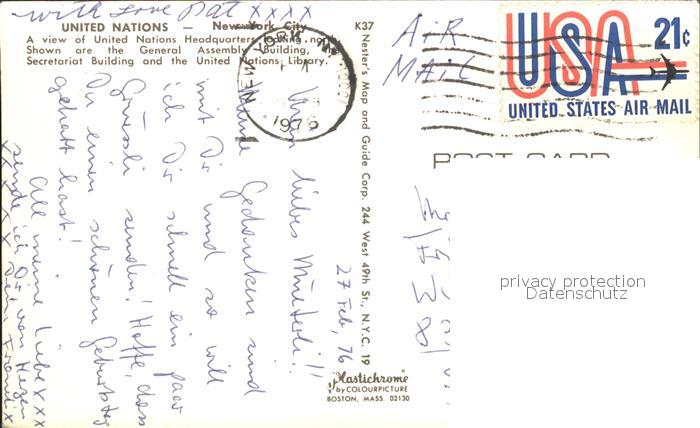 with love Pat xxxx
UNITED NATIONS — New York City
A view of United Nations Headquarters looking north.
Shown are the General Assembly Building, the
Secretariat Building and the United Nations Library.
K37
Nester's Map and Guide Corp. 244 West 49th St., N.Y.C. 19
AIR
MAIL
USA 21¢
UNITED STATES AIR MAIL
1976
POST CARD
27 Feb, 76
liebes Müeterli!!
Gedanken sind
mit Dir und so will
ich Dir schnell ein paar
Grüessli senden! Hoffe, dass
Du einen schönen Geburtstag
gehabt hast!
All meine Liebe xxx
sende ich Dir von Herzen
Plastichrome
by COLOURPICTURE
BOSTON, MASS. 02130
privacy protection
Datenschutz